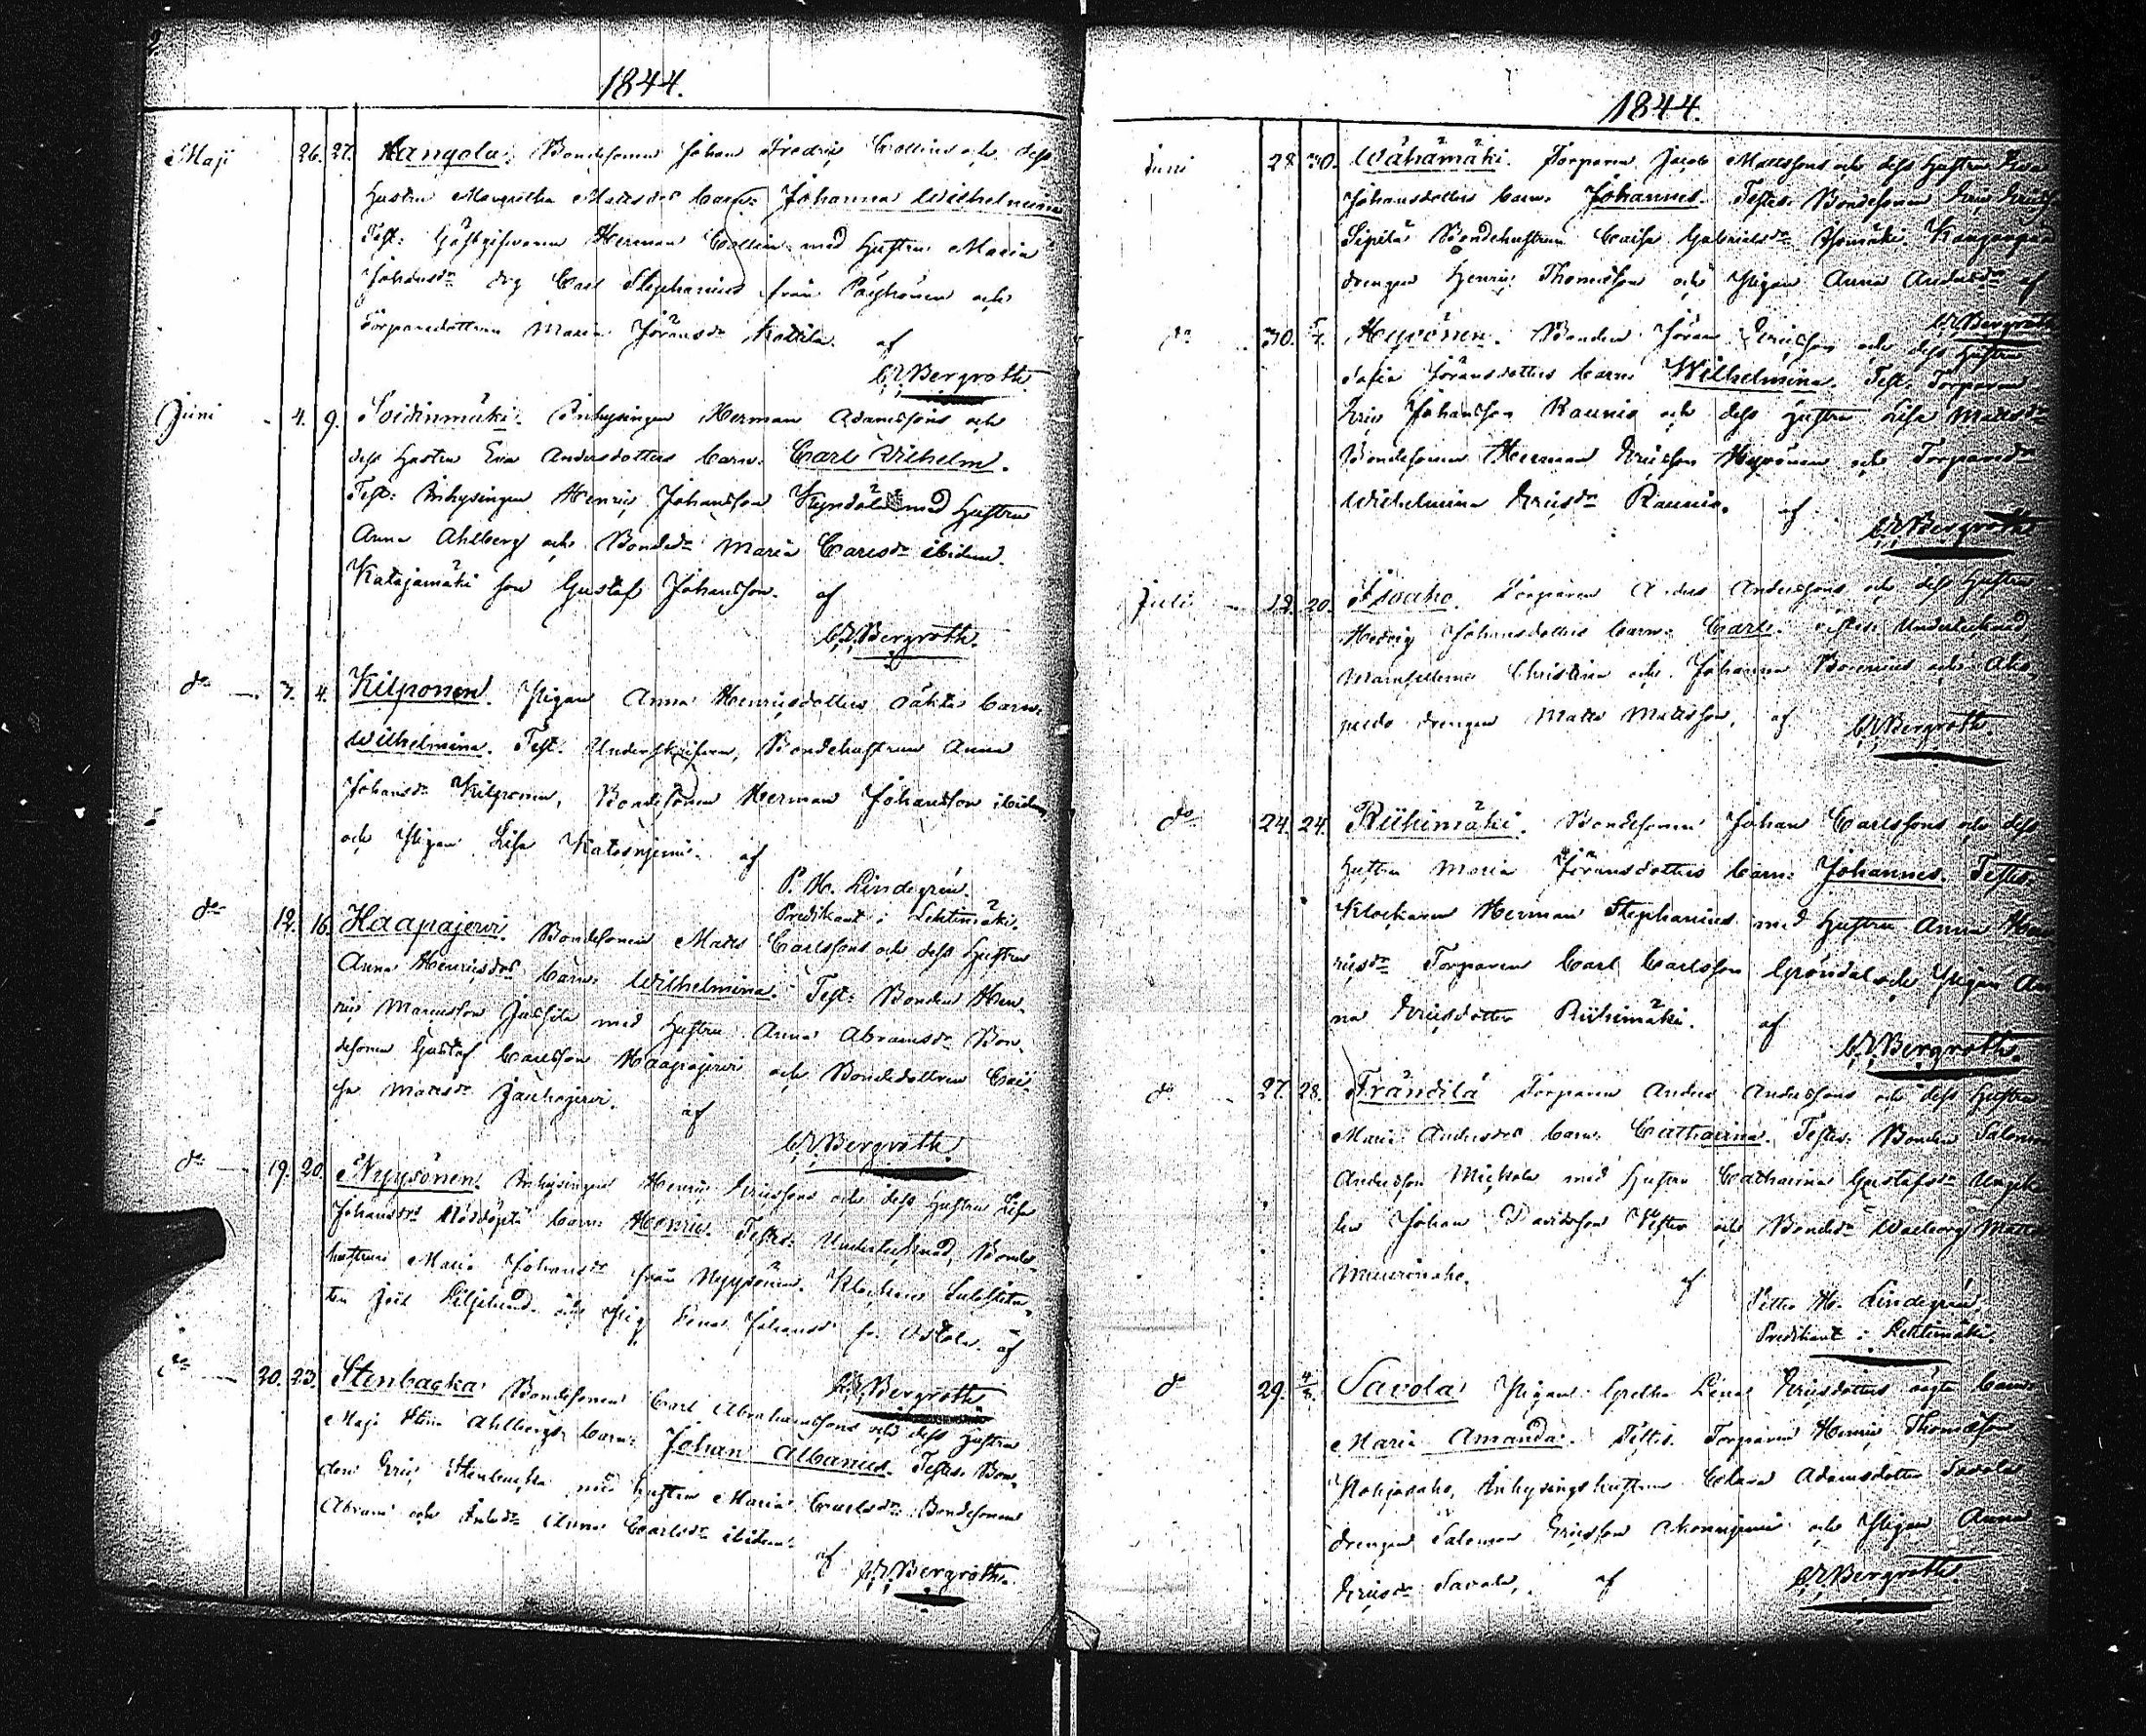 1844.
Maji 26. 27. Kangola. Bondesonen Johan Fredric Collins och dess
hustru Margretha Mattsdrs barn: Johanna Wilhelmina
Test: Gästgifvaren Herman Collin med hustru Maria
Johansdr drg Carl Stephanius från och
Torparedottren Maria Jöransdr Kottila. af
Bergroth.
Juni 4. 9. Soidinmäki. Inhysingen Herman Adamssons och
dess hustru Eva Andersdotters barn: Carl Vilhelm.
Test: Inhysingen Henric Johansson med hustru
Anna Ahlberg och Bondedr Maria Carlsdr ibidem.
Katajamäki son Gustaf Johansson. af
Bergroth.
do 3. 4. Kilponen. Pigan Anna Henricsdotters oäkta barn.
Wilhelmina. Test. Bondehustrun Anna
Johansdr Kilponen, Bondesonen Herman Johansson ibidem
och Pigan Lisa af
P. H. Lindegrén.
Predikant i Lehtimäki.
do 12. 16. Haapajervi. Bondesonen Matts Carlssons och dess hustru
Anna Henricsdrs barn: Wilhelmina. Test: Bonden Hen-
ric Jussila med hustru Anna Abramsdr Bon-
desonen Gustaf Carlsson Haapajervi och Bondedottren Cai-
sa Mattsdr Jauhojervi. af
Bergroth.
do 19. 20. Nyysönen. Inhysingen Henric Ericssons och dess hustru Lisa
Johansdrs Nöddöpta barn: Henric. Testes: Undertecknad, Bonde-
hustrun Maria Johansdr från Nyysönen. Klockare Substitu-
ten Joel Liljelund och Pig Lena Johansdr fr. af
Bergroth
do 20. 23. Stenbacka Bondesonen Carl Abrahamssons och dess hustru
Maja Stina Ahlbergs barn: Johan Albanus. Testes. Bon-
den Eric Stenbacka med hustru Maria Carlsdr Bondesonen
Abram och Anna Carlsdr ibidem.
af Bergroth.
1844.
Juni 28. 30. Wähämäki. Torparen Jacob Mattssons och dess hustru
Johansdotters barn. Johannes. Testes: Bondesonen Eric
Sipilä Bondehustrun Caisa Gabrielsdr
drengen Henric Thomasson och Pigan Anna Andersdr af
Bergroth
do 30. 5/7. Hyvönen. Bonden Jöran Ericsson och dess hustru
Sofia Jöransdotters barn Wilhelmina. Test. Torparen
Eric Johansson Raunio och dess hustru Lisa Mattsdr
Bondesonen Herman Ericsson Hyvönen och Torparedr
Wilhelmina Ericsdr Raunio. af
Bergroth
Juli 19. 20. Isoaho. Torparen Anders Anderssons och dess hustru
Hedvig Johansdotters barn: Carl. Testes: Undertecknad
Mamsellerne Christina och Johanna och
drengen Matts Mattsson, af Bergroth.
do 24. 24. Riihimäki. Bondesonen Johan Carlssons och dess
hustru Maria Jöransdotters barn: Johannes. Testes:
Klockaren Herman Stephanius med hustru Anna Hen-
ricsdr Torparen Carl Carlsson Gröndal och Pigan An-
na Ericsdotter Riihimäki. af
Bergroth.
do 27. 28. Frändilä Torparen Anders Anderssons och dess hustru
Maria Andersdrs barn: Catharina. Testes: Bonden Salomon
Andersson Mickola med hustru Catharina Gustafsdr
Johan Davidsson och Bondedr Walborg
af
Petter H. Lindegrén,
Predikant i Lehtimäki.
do 29. 4/8. Savola Pigan Greta Lena Ericsdotters oägta barn
Maria Amanda. Testes. Torparen Henric Thomasson
Inhysingshustrun Clara Adamsdotter Savola
drengen Salomon Ericsson och Pigan Anna
Ericsdr Savola, af Bergroth.